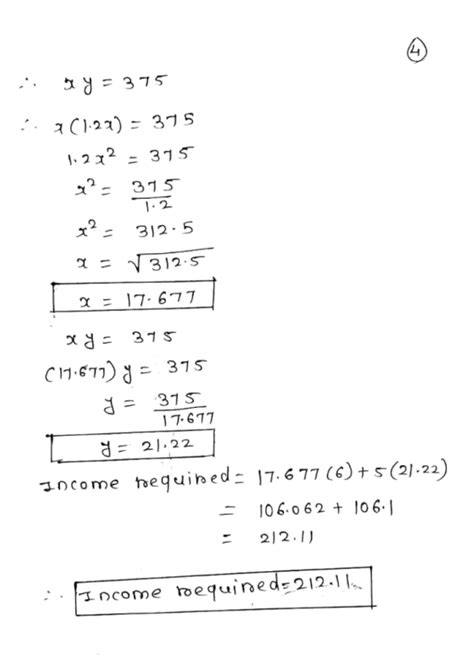 ④
∴ xy = 375
∴ x(1.2x) = 375
1.2x² = 375
x² = 375/1.2
x² = 312.5
x = √312.5
x = 17.677
xy = 375
(17.677) y = 375
y = 375/17.677
y = 21.22
Income required = 17.677(6) + 5(21.22)
= 106.062 + 106.1
= 212.11
∴ Income required = 212.11